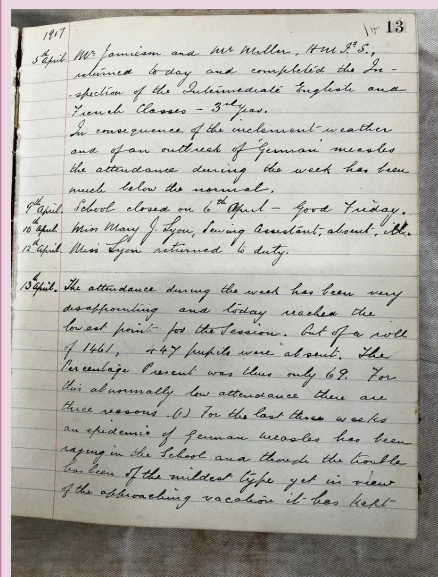 1917
13
5th April. Mr Jamieson and Mr Miller, H.M.I.S.,
returned today and completed the In-
-spection of the Intermediate English and
French Classes - 3rd Year.
In consequence of the inclement weather
and of an outbreak of 'German' measles
the attendance during the week has been
much below the normal.
9th April. School closed on 6th April - Good Friday.
10th April. Miss Mary J. Lyon, Sewing Assistant, absent, ill.
12th April. Miss Lyon returned to duty.
13th April. The attendance during the week has been very
disappointing and today reached the
lowest point for the session. Out of a roll
of 1461, 447 pupils were absent. The
Percentage Present was thus only 69. For
this abnormally low attendance there are
three reasons. (1) For the last three weeks
an epidemic of German measles has been
raging in the School and though the trouble
has been of the mildest type yet in view
of the approaching vacation it has kept